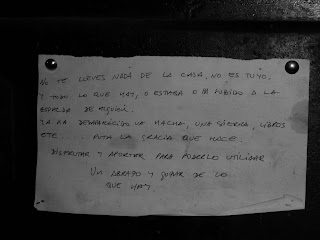 NO TE LLEVES NADA DE LA CASA, NO ES TUYO.
Y TODO LO QUE HAY, O ESTABA O HA SUBIDO A LA
ESPALDA DE ALGUIEN.
YA HA DESAPARECIDO UN HACHA, UNA SIERRA, LIBROS
ETC..... PUTA LA GRACIA QUE HACE.
DISFRUTAR Y APORTAR PARA PODERLO UTILIZAR
UN ABRAZO Y GOZAR DE LO
QUE HAY.